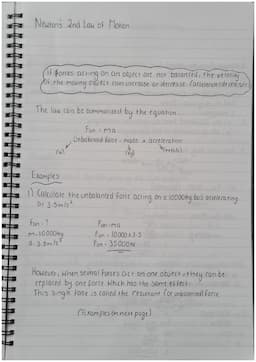 Newton's 2nd Law of Motion
If forces acting on an object are not balanced, the velocity
of the moving object can increase or decrease.
The law can be summarised by the equation...
Fun = ma
Unbalanced force = mass x acceleration
(N) (kg) (m/s/s)
Examples
1) Calculate the unbalanced force acting on a 10000kg bus accelerating
at 3.5m/s²
Fun = ? Fun = ma
m = 10000kg Fun = 10000 x 3.5
a = 3.5m/s² Fun = 35000N
However, when several forces act on one object, they can be
replaced by one force which has the same effect.
This single force is called the resultant (or unbalanced) force
(examples on next page)